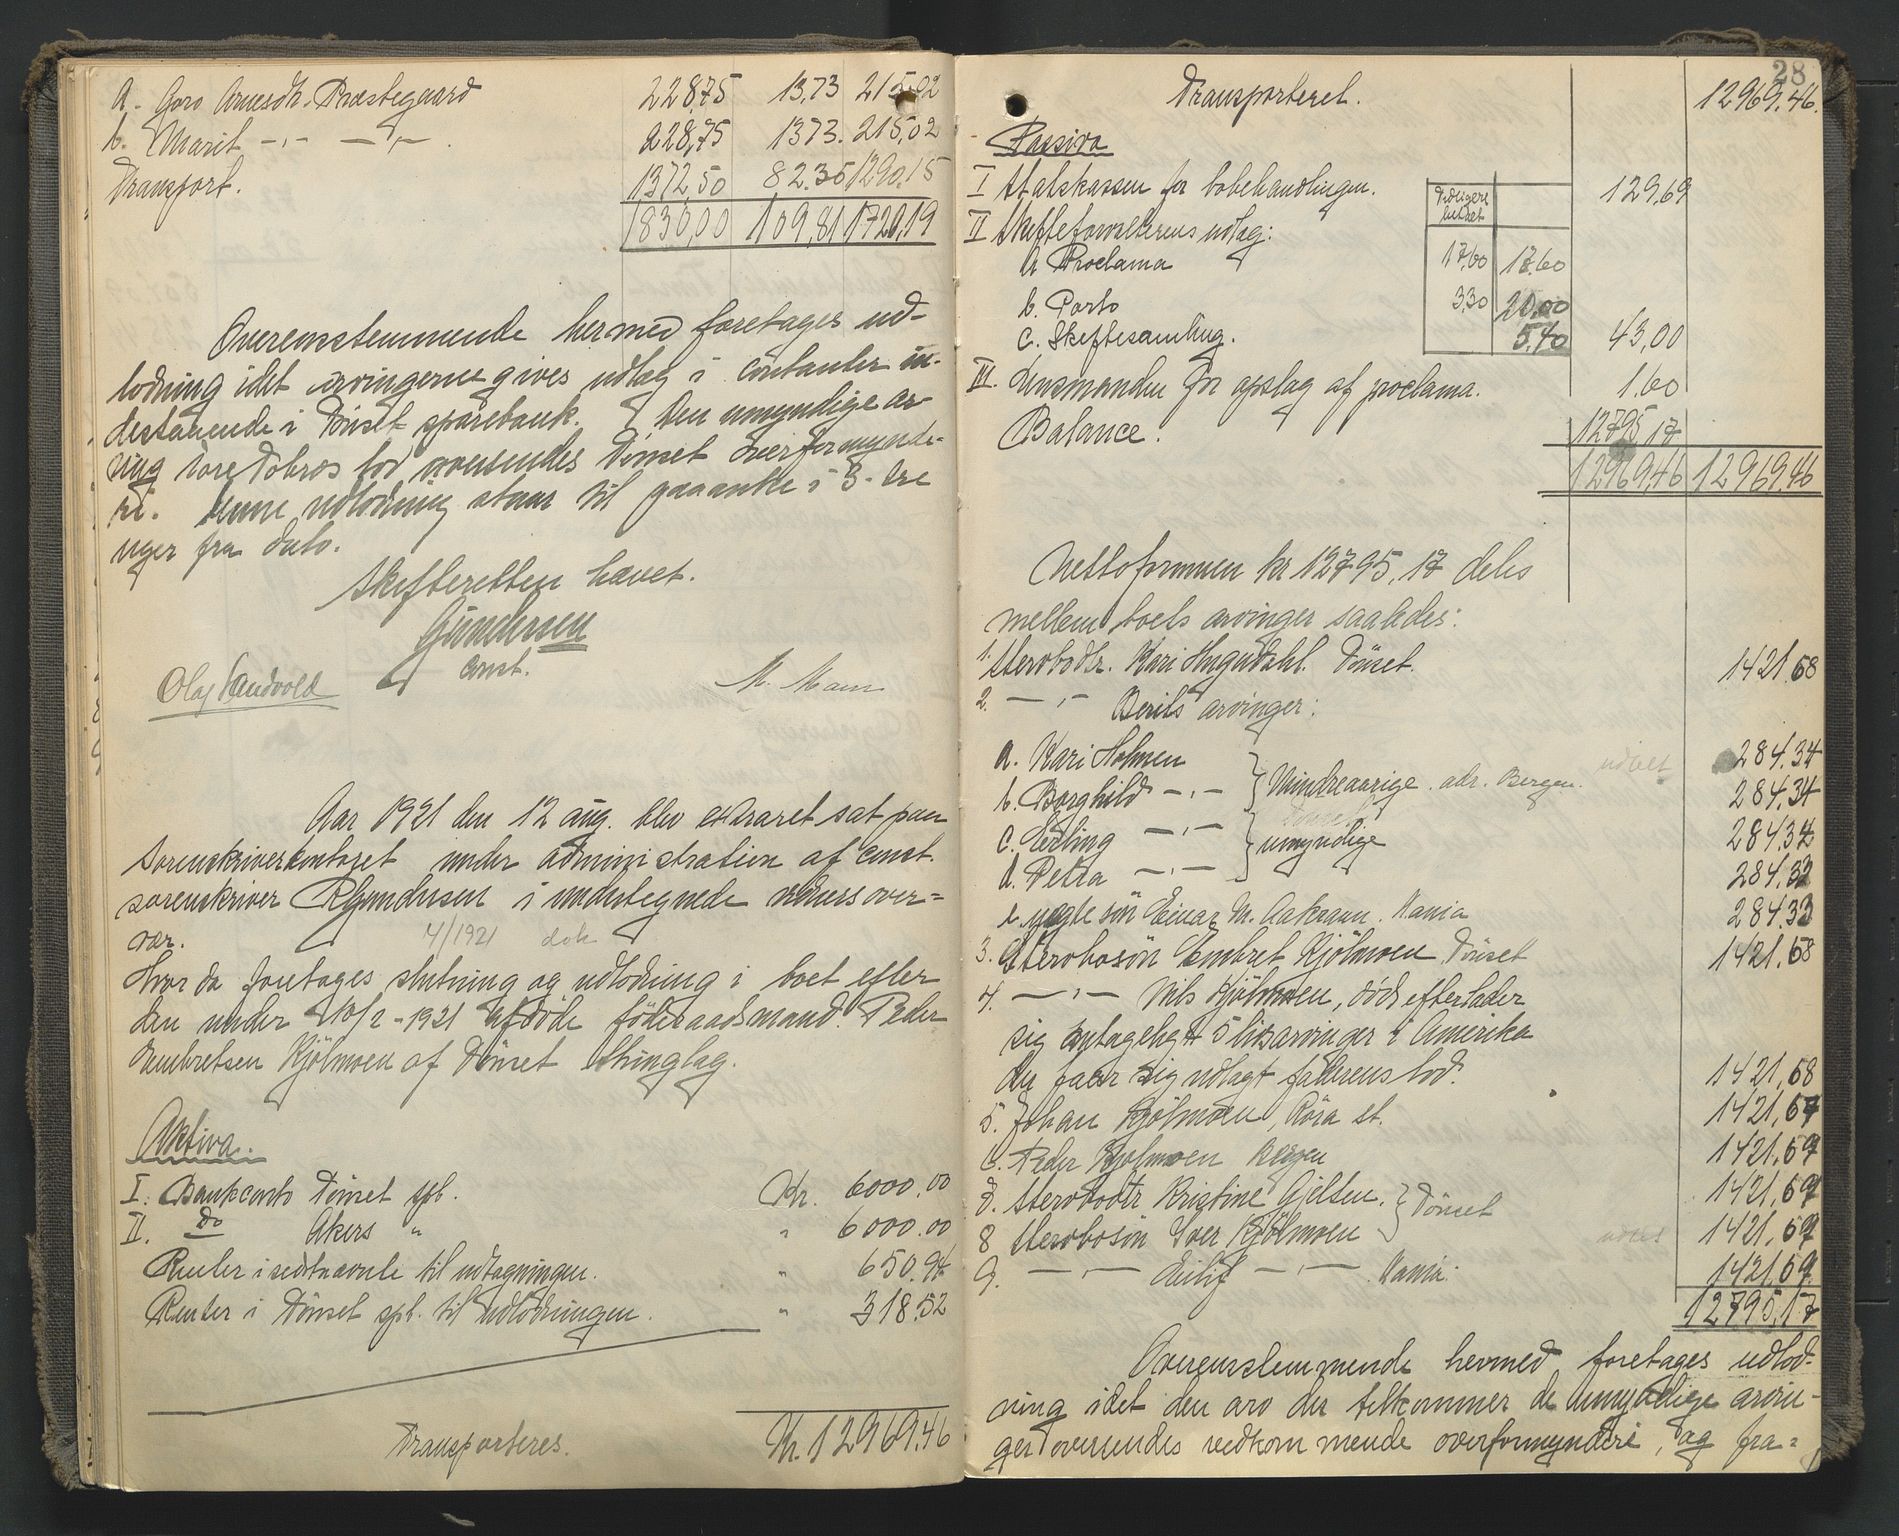 a. Goro Arnesdtr. Præstegaard 228,75 13,73 215,02
b. Marit -„- -„- 228,75 1373. 215,02
Transport. 1372,50 82.35 1290.15
1830,00 109,81 1720,19
Overensstemmende hermed foretages ud-
lodning idet arvingerne gives udlag i contanter in-
destaaende i Tönset sparebank. Den umyndige ar-
ving Tore Tobros lod oversendes Tönset overformynde-
ri. Denne udlodning staar til paaanke i 3- tre
uger fra dato.
Skifteretten hævet.
Gundersen
const.
Olaf Sandvold M. Moen
Aar 1921 den 12 aug. blev extraret sat paa
sorenskriverkontoret under administration af const.
sorenskriver R Gundersen i undertegnede vidners over-
vær.
4/1921 dok
Hvor da foretages slutning og udlodning i boet efter
den under 10/2-1921 afdöde föderaadsmand Peder
Embretsen Kjölmoen af Tönset thinglag.
Aktiva.
I. Bankconto Tönset spb. Kr. 6000.00
II. Do Akers " " 6000.00
Renter i sidstnævnte til udtagningen. " 650.94
Renter i Tönset spb. til udlodningen. " 318.52
Transporteres. Kr. 12969.46
28
Transporteret. 12969.46.
Passiva
I Statskassen for bobehandlingen. 129,69
II Skifteforvalterens udlæg:
Tidligere
a Proclama 17,60 17.60
b. Porto 3,30 20.00
c. Skiftesamling. 5.40 43,00
III. Lensmanden for opslag af proclama. 1.60
Balance. 12795,17
12969.46 12969.46
Nettoformuen kr 12795,17 deles
mellem boets arvinger saaledes:
1. Stervbodtr. Kari Hugudahl. Tönset. 1421.68
2. -„- Berits arvinger:
a. Kari Holmen 284.34
b. Borghild -„- } Mindreaarige. adr. Bergen. 284.34
c. Erling -„- 284.34
d. Petra -„- } umyndige 284.33
e. uegte sön Einar M. Aakraan. Vania 284.33
3. Stervbosön Embret Kjölmoen Tönset 1421.68
4. -„- Nils Kjölmoen, död efterlader
sig antageligt 5 livsarvinger i Amerika
der faar sig udlagt faderens lod. 1421,68
5. Johan Kjölmoen, Röra st. 1421,67
6. Peder Kjölmoen Bergen 1421.69
7. Stervbodtr Kristine Gjelten. } Tönset 1421,69
8 Stervbosön Iver Kjölmoen 1421,69
9. -„- Eilif -„- Vania. 1421.69
12795,17
Overensstemmende hermed foretages udlod-
ning idet den arv der tilkommer de umyndige arvin-
ger oversendes vedkommende overformynderi, og fra=